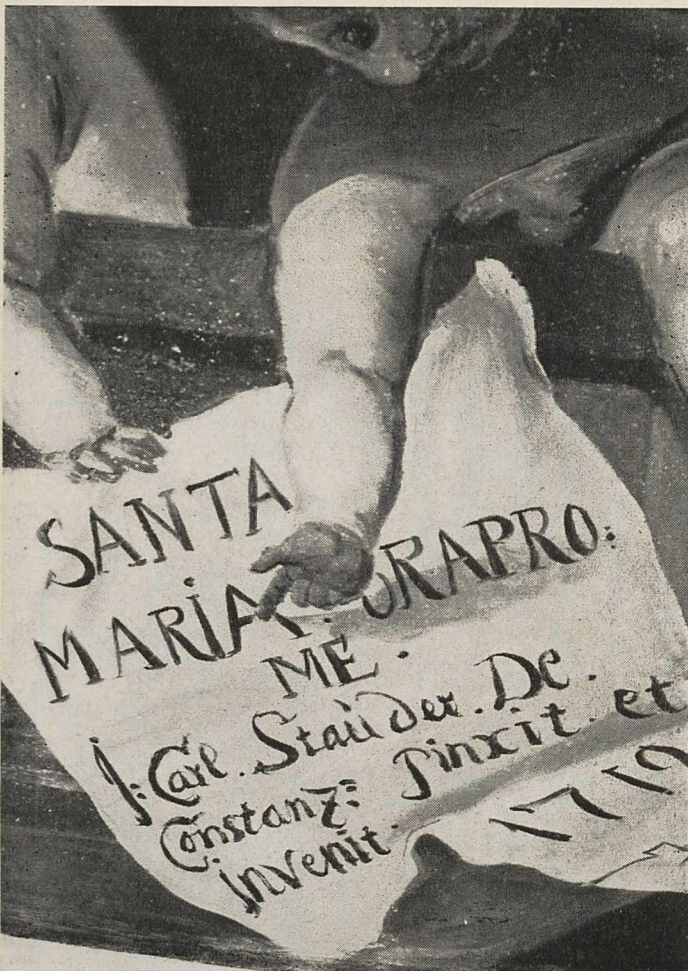 SANTA
MARIA. ORAPRO:
ME.
J: Carl. Stauder. De.
Constanz: Pinxit. et
invenit. 1719